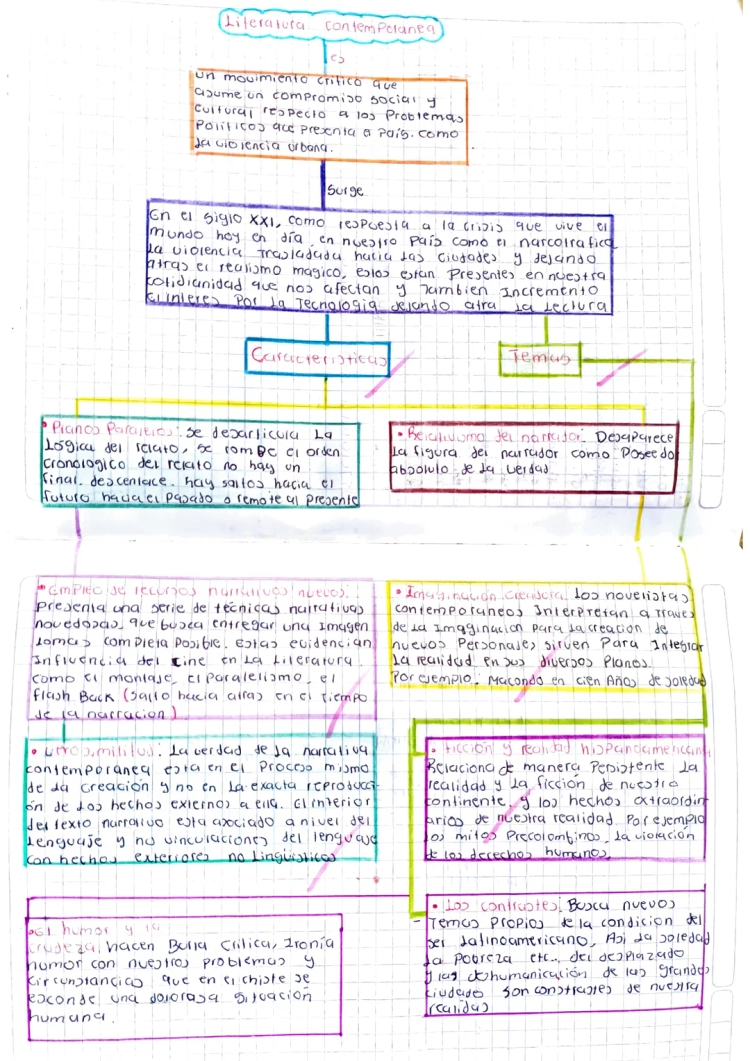 Literatura contemporanea
es
un movimiento critico que
asume un compromiso social y
cultural respecto a los Problemas
Politicos que presenta a País. como
la violencia urbana.
Surge
En el siglo XXI, como respuesta a la crisis que vive el
mundo hoy en día, en nuestro País como el narcotrafico
la violencia trasladada hacia las ciudades y dejando
atras el realismo magico, estos estan Presentes en nuestra
cotidianidad que nos afectan y Tambien Incremento
el interes Por la Tecnologia dejando atra la Lectura
Caracteristicas
Temas
• Planos Paralelos: Se desarticula La
Lógica del relato, se rompe el orden
cronologico del relato no hay un
final. descenlace. hay saltos hacia el
futuro hacia el Pasado o remote al Presente
• Relativismo del narrador. Desaparece
La figura del narrador como Poseedo
absoluto de la verdad
• Empleo de recursos narrativos nuevos.
Presenta una serie de técnicas narrativas
novedosas, que busca entregar una Imagen
lomas completa Posible. Estas evidencian
Influencia del cine en La Literatura
como el montaje, el Paralelismo, el
flash Back (salto hacia atras en el tiempo
de la narracion)
• Imaginación creadora. Los novelistas
contemporaneos Interpretan a Traves
de La Imaginacion Para La creacion de
nuevos Personajes, sirven Para Integrar
La realidad en sus diversos Planos.
Por ejemplo. Macondo en cien Años de soledad
• verosimilitud: La verdad de la narrativa
contemporánea esta en el Proceso mismo
de la creación y no en La exacta reproducci
ón de Los hechos externos a ella. El interior
del texto narrativo esta asociado a nivel del
Lenguaje y no vinculaciones del lenguaje
con hechos exteriores no Lingüisticos
• Ficción y realidad hispanoamericana
Relaciona de manera Persistente La
realidad y La ficción de nuestro
continente y los hechos extraordin
arios de nuestra realidad. Por ejemplo
los mitos Precolombinos, La violación
de los derechos humanos.
• El humor y la
crudeza, hacen Burla critica, Ironía
humor con nuestros problemas y
circunstancias que en el chiste se
esconde una dolorasa situación
humana.
• Los contrastes. Busca nuevos
Temas Propios de la condicion del
ser Latinoamericano, Asi la soledad
la Pobreza etc., del desplazado
y las deshumanicación de las Grandes
ciudade son constrastes de nuestra
realidad